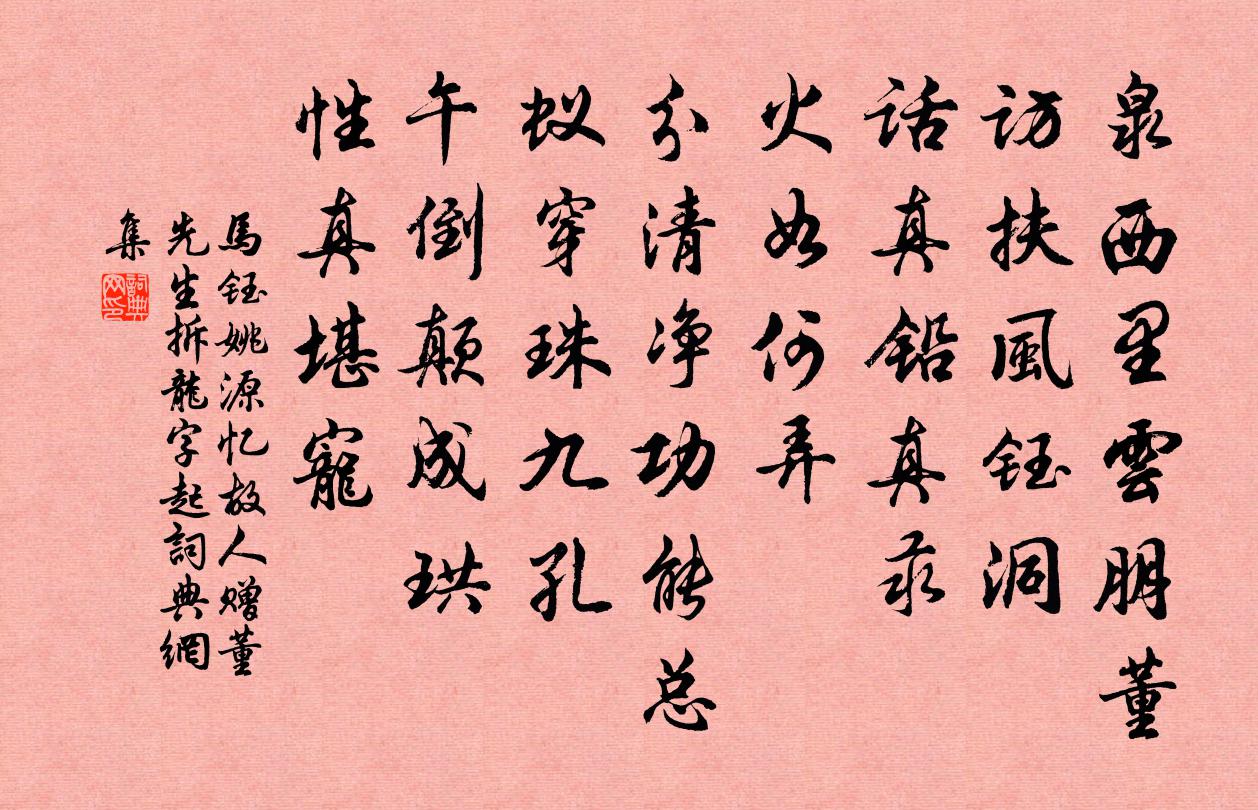 泉西里雲朋董
访扶風钰洞
话真铅真汞
火如何弄
分清净功能总
蚁穿珠九孔
午倒颠成珙
性真堪寵
馬钰姚源忆故人赠董
先生拆龍字起詞典網
集
詞典
网印